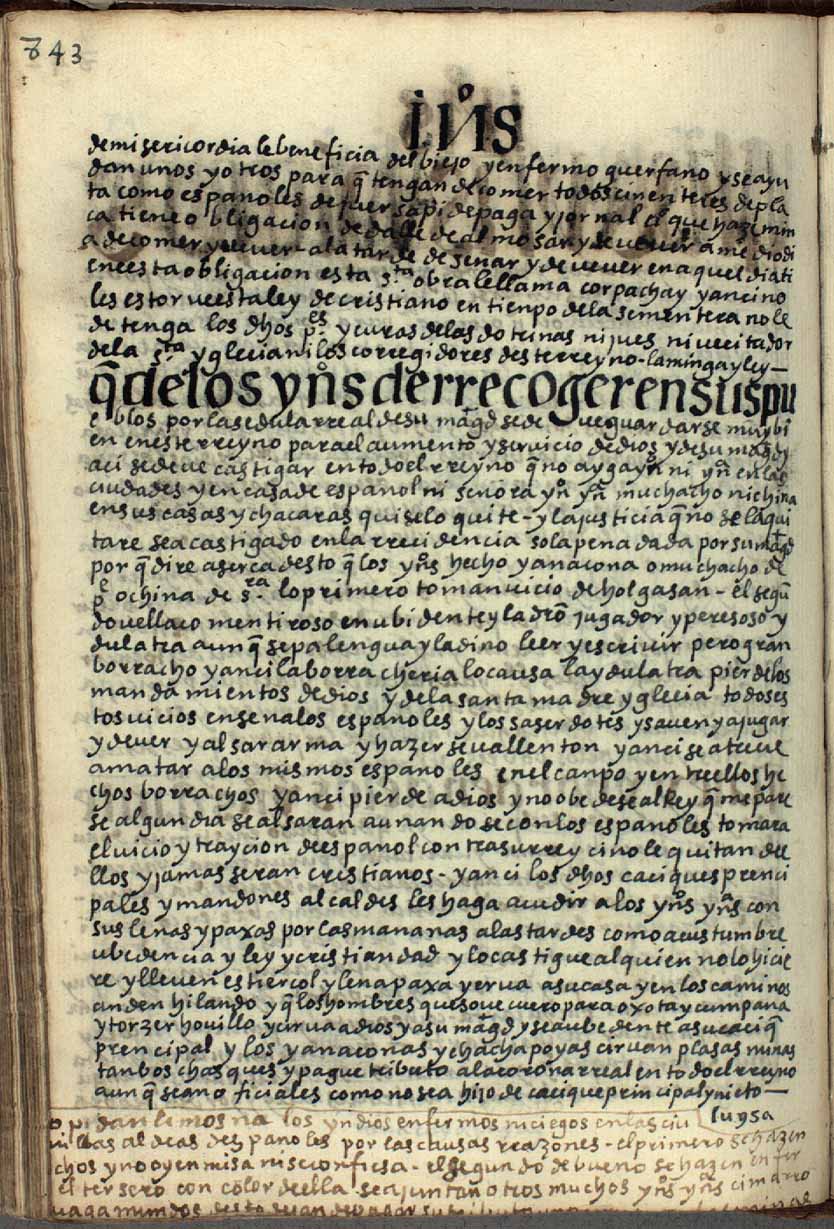 843
yños
de misericordia le beneficia del biejo y enfermo guerfano y se ayu
dan unos y otros para q̃ tengan de comer todos cin enteres de pla
ta como españoles de fuersa pide paga y jornal el que haze min
ca tiene obligacion de dalle de almosar y de vever a me dio di
a de comer y vever a la tarde de senar y de vever en aquel dia ti
enen esta obligacion esta s.ta obra le llama corpachay y anci no
les estorve esta ley de cristiano en tienpo de la sementera no le
detenga los dhos p.es y curas de las dotrinas ni jues ni vecitador
de la s.ta yglecia ni los corregidores deste rreyno - la minga y ley —
q̃ de los yños de rrecoger en sus pu
eblos por la sedula rreal de su mag̃d se deve guardarse muy bi
en en este rreyno para el aumento y servicio de dios y de su mag̃d y
aci se deve castigar en todo el rreyno q̃ no ayga yño ni yña en las
ciudades y en casa de español ni señora yño yña muchacho ni china
en sus casas y chacaras quiselo quite - y la justicia q̃ no se la qui
tare sea castigado en la rrecidencia so la pena dada por su mag̃d
por q̃ dire aserca desto q̃ los yños hecho yanacona o muchacho de
p.e o china de s.ra lo primero toman vicio de holgasan - el segũ
do vellaco mentiroso enubidente y ladrõ jugador y peresoso y
dulatra aun q̃ sepa lengua y ladino leer y escrivir pero gran
borracho y anci la borracheria lo causa la ydulatra pierde los
mandamientos de dios y de la santa madre yglecia todos es
tos vicios enseña los españoles y los saserdotes y saven y a jugar
y vever y alsar arma y hazerse vallenton y anci se atreve
a matar a los mismos españoles en el canpo y entre ellos he
chos borrachos y anci pierde a dios y no obedese al Rey q̃ me pare
se algun dia se alsaran aunandose con los españoles tomara
el vicio y traycion de español contra su rrey ci no le quitan de e
llos y jamas seran cristianos - y anci los dhos caciques prenci
pales y mandones alcaldes les haga acudir a los yños yñas con
sus leñas y paxas por las mañanas a las tardes como acustumbre
ubedencia y ley y cristiandad y lo castigue al quien no lo hicie
re y lleven estiercol y leña paxa yerva a su casa y en los caminos
anden hilando y q̃ los hombres quesove cuero para oxota y cumpana
y torzer hovillo y cirva a dios y a su mag̃d y sea ubedente a su caciq̃
prencipal y los yanaconas y chachapoyas cirvan plasas minas
tanbos chasques y pague tributo a la corona rreal en todo el rreyno
aun q̃ sean oficiales como no sea hijo de cacique principal y nieto —
lugsa
o pidan lemosna los yndios enfermos ni ciegos en las ciu
villas aldeas despañoles por las causas rrazones - el primero se hazen
chos y no oyen misa ni se confiesa - el segundo de bueno se hazen enfer
el tersero con color de ella se ajuntan otros muchos yños yñas cimarro
vagamundos